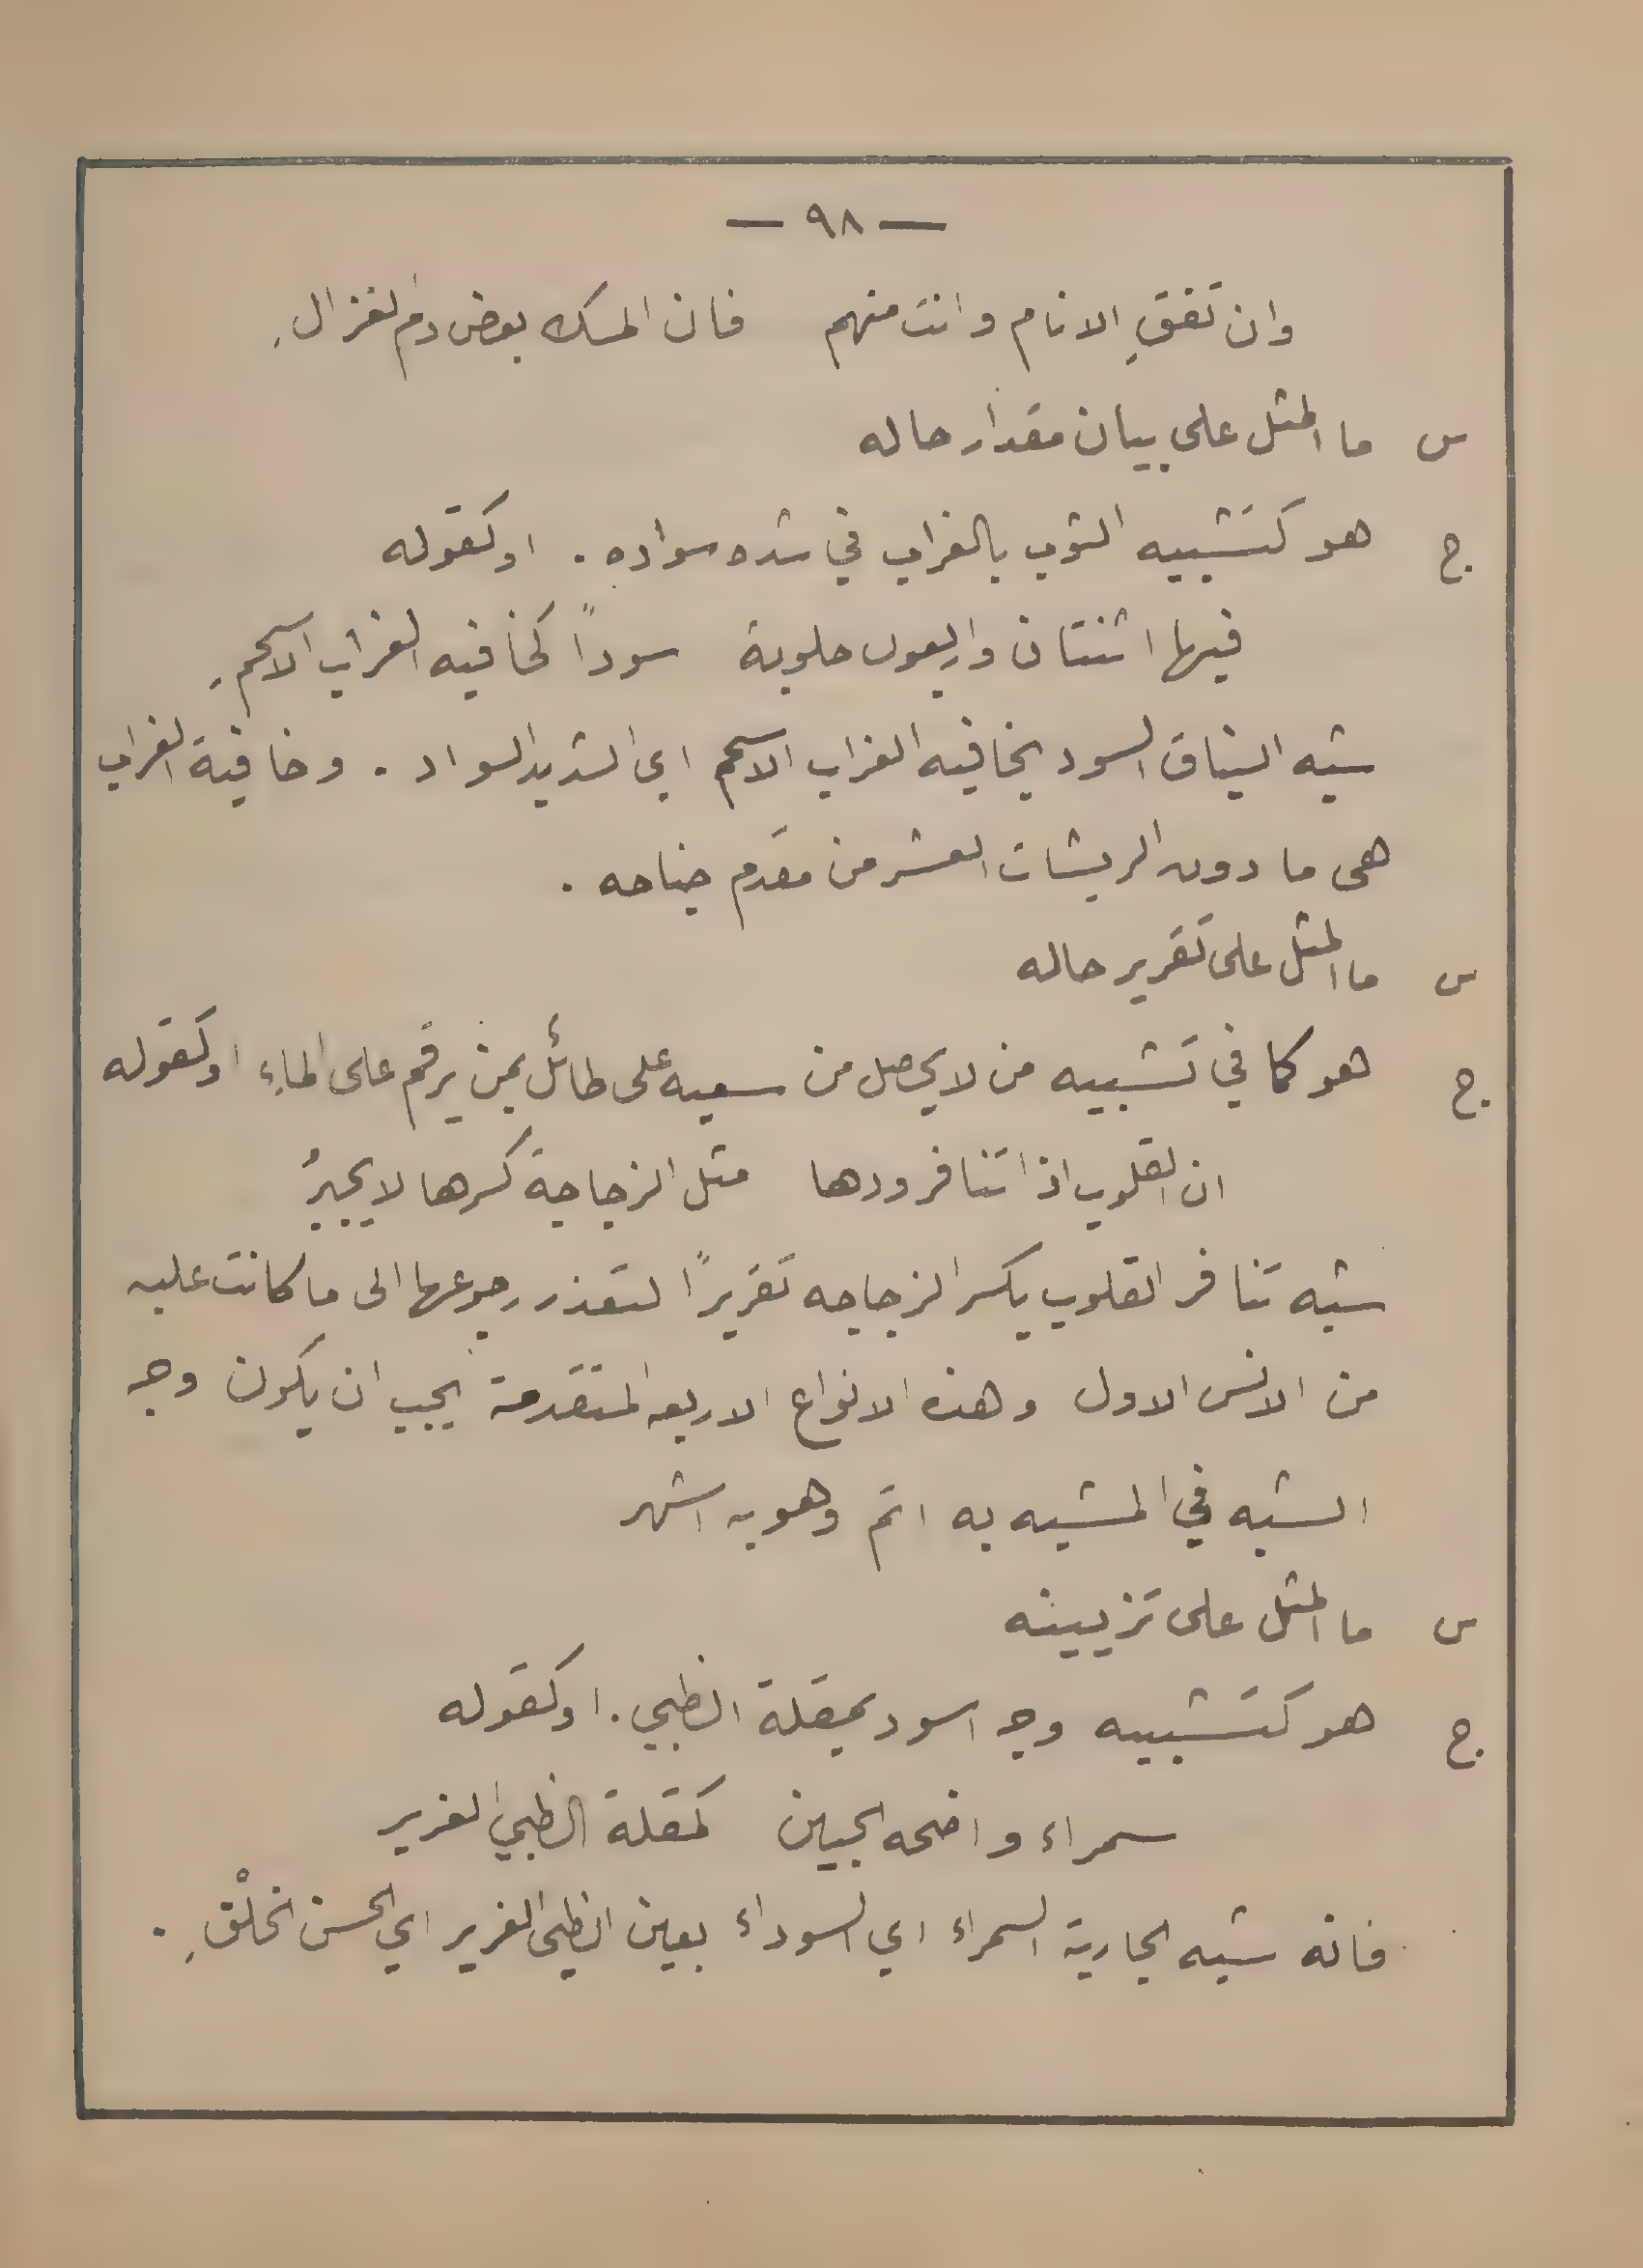 — ٩٨ —
وان تَفقِ الانام وانت منهم فان المسك بعض دم الغزالِ
س ما المثل على بيان مقدار حاله
ج هو كتشبيه الثوب بالغراب في شده سواده . او كقوله
فيها اثنتان واربعون حلوبة سوداً كخافيه الغراب الاسحمِ
شبه النياق السود بخافيه الغراب الاسحم اي الشديد السواد . وخافية الغراب
هى ما دون الريشات العشر من مقدم جناحه .
س ما المثل على تقرير حاله
ج هو كما في تشبيه من لا يحصل من سعيه على طائل بمن يرقم على الماءِ او كقوله
ان القلوب اذا تنافر ودها مثل الزجاجة كسرها لا يجبرُ
شبه تنافر القلوب بكسر الزجاجه تقريرًا لتعذر رجوعها الى ما كانت عليه
من الانس الاول وهذه الانواع الاربعه المتقدمة يجب ان يكون وجه
الشبه في المشبه به اتم وهو به اشهر
س ما المثل على تزيينه
ج هو كتشبيه وجه اسود بمقلة الظبي . او كقوله
سمراء واضحه الجبين كمقلة الظبي الغرير
فانه شبه الجارية السمراء اي السوداء بعين الظبى الغرير اي الحسن الخلْقِ .